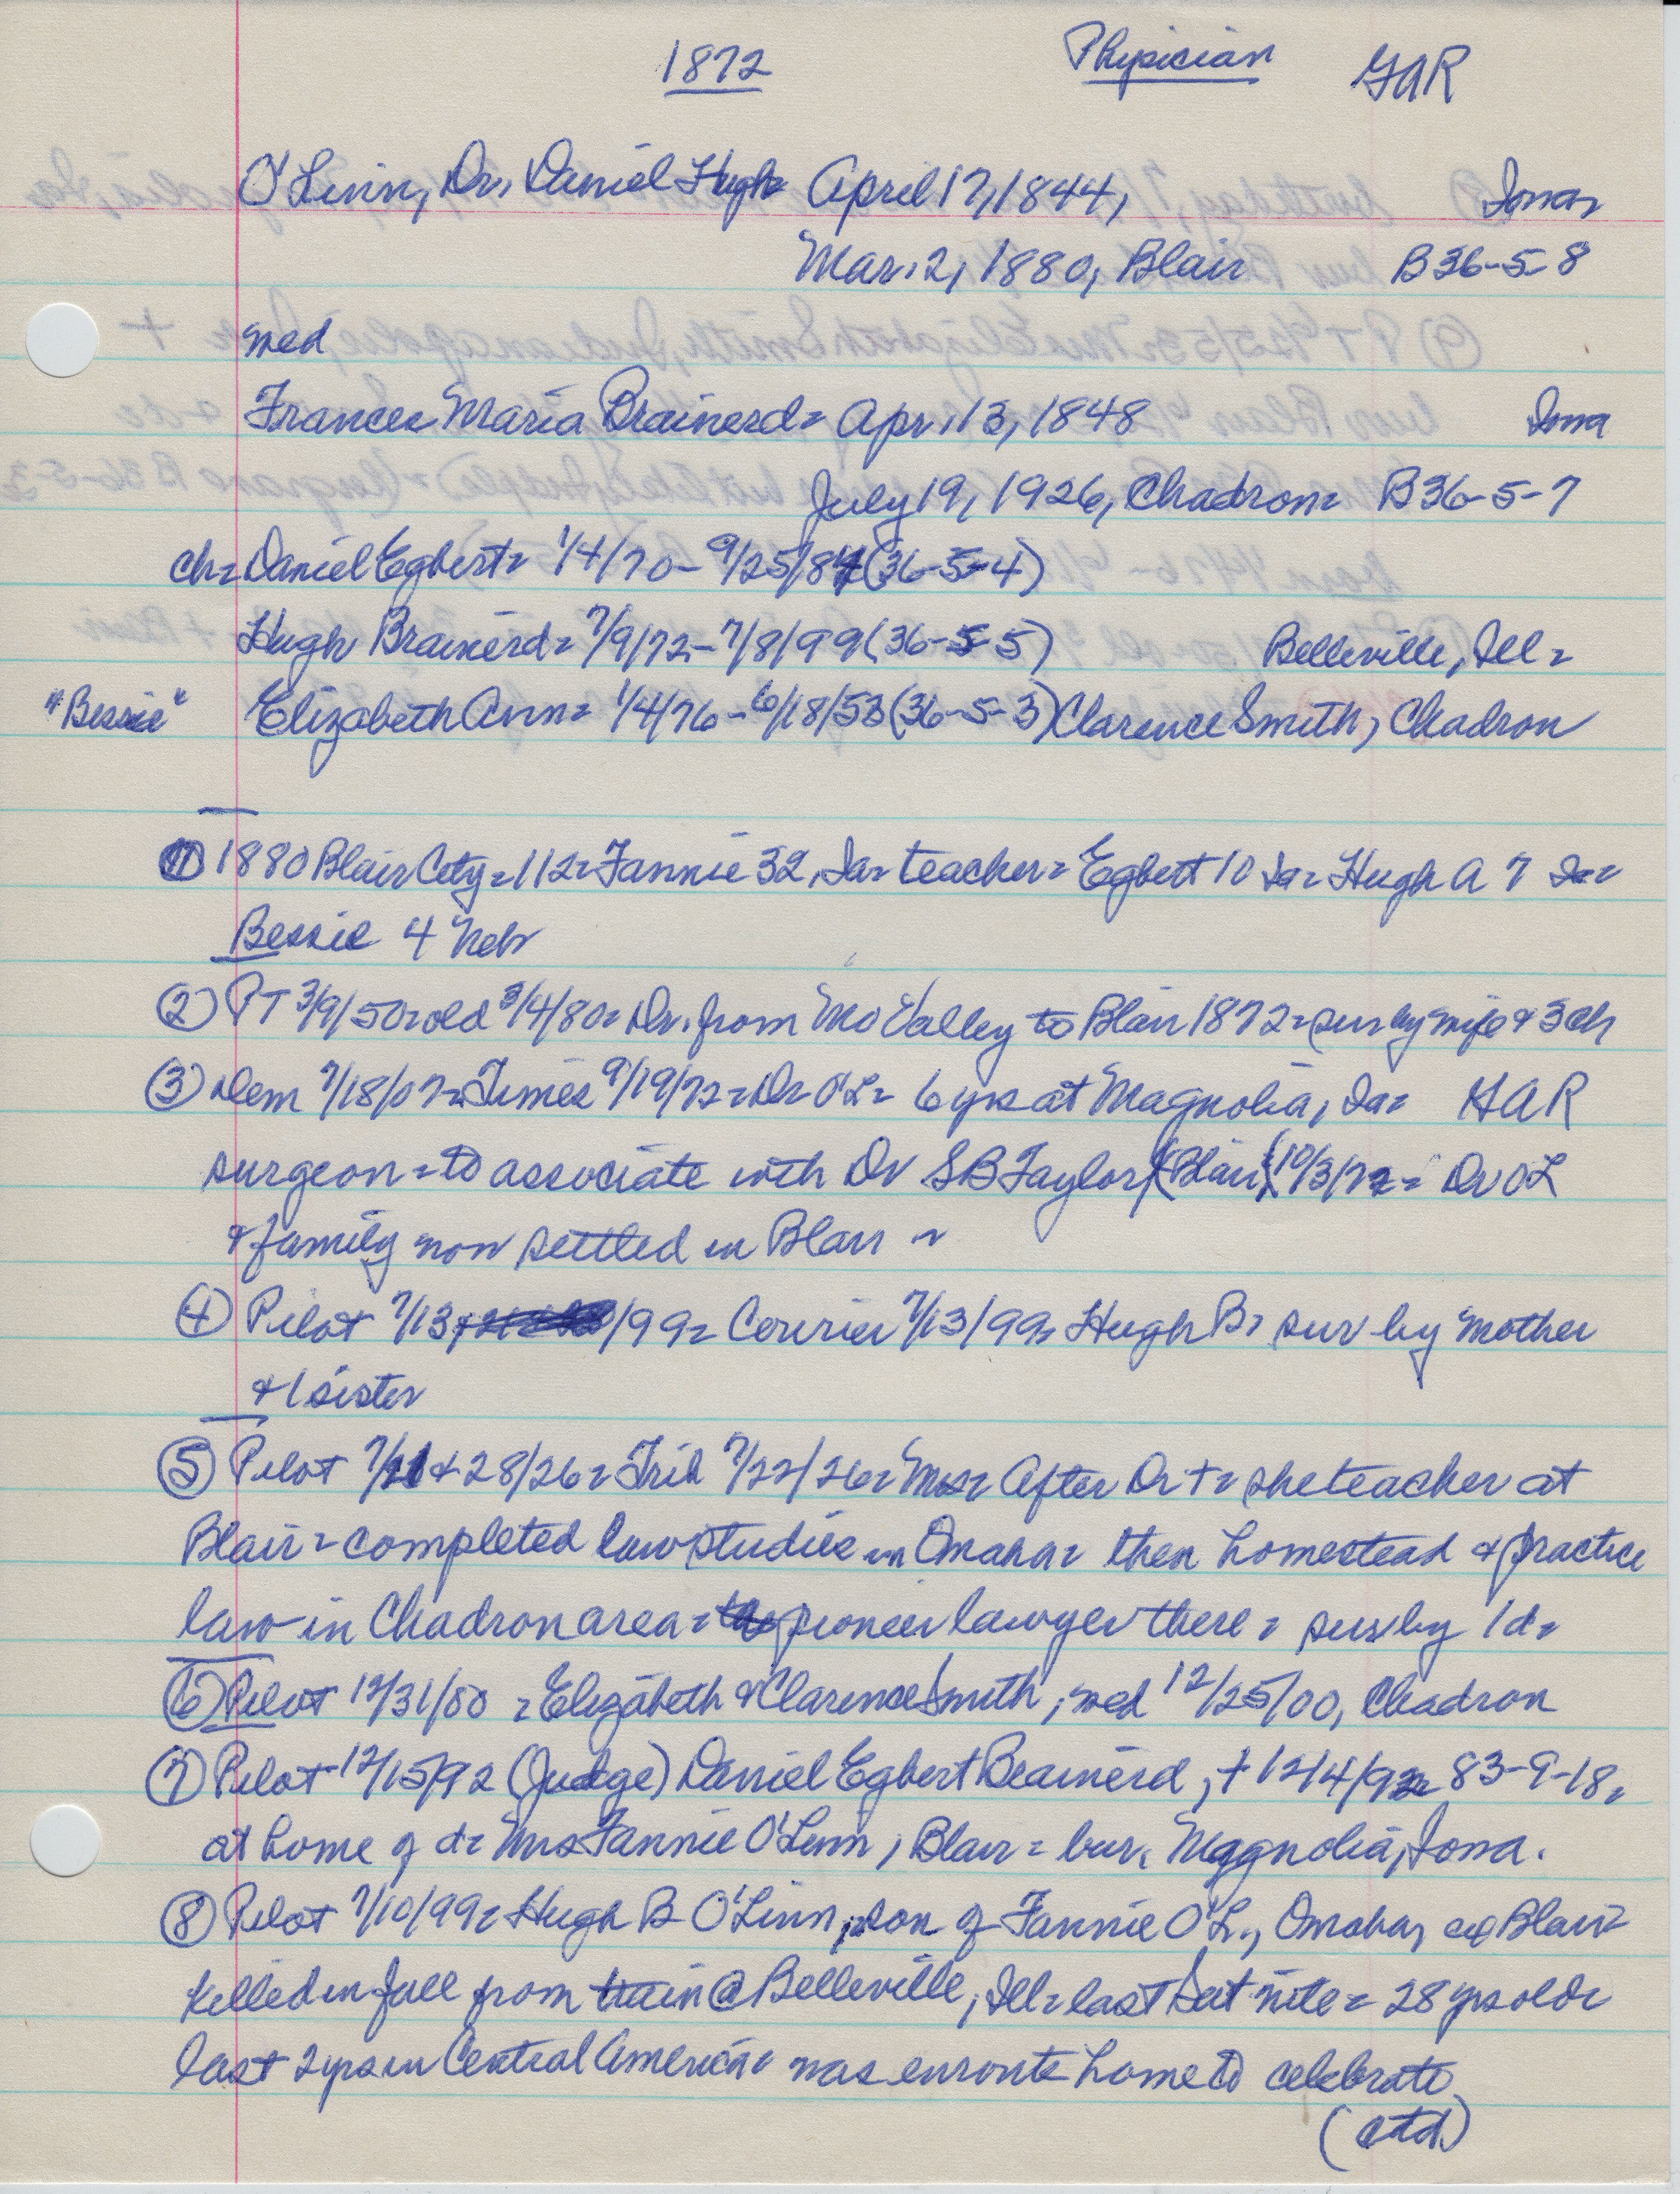 1872 Physician GAR
O'Linn, Dr. Daniel Hugh April 17, 1844, Iowa
Mar. 2, 1880, Blair B36-5-8
med
Frances Maria Brainerd = Apr. 13, 1848 Iowa
July 19, 1926, Chadron = B36-5-7
ch = Daniel Egbert = 1/4/70 - 9/25/84 (36-5-4)
Hugh Brainerd = 7/9/72 - 7/8/99 (36-5-5) Belleville, Ill =
"Bessie" Elizabeth Ann = 1/4/76 - 6/18/53 (36-5-3) Clarence Smith, Chadron
① 1880 Blair City = 112 = Fannie 32, Ia = teacher = Egbert 10 Ia = Hugh A 7 Ia =
Bessie 4 Nebr
② PT 3/9/50 = old 3/4/80 = Dr. from Mo Valley to Blair 1872 = sur by wife & 3 ch
③ Dem 7/18/07 = Times 9/19/72 = Dr O'L = 6 yrs at Magnolia, Ia = GAR
surgeon = to associate with Dr S B Taylor (Blair) (10/3/72 = Dr OL
& family now settled in Blair
④ Pilot 7/13/99 = Courier 7/13/99 = Hugh B = sur by mother
& 1 sister
⑤ Pilot 7/21 & 28/26 = Trib 7/22/26 = Mrs = After Dr + = she teacher at
Blair = completed law studies in Omaha = then homestead & practice
law in Chadron area = pioneer lawyer there = sur by 1 d =
⑥ Pilot 12/31/00 = Elizabeth & Clarence Smith, med 12/25/00, Chadron
⑦ Pilot 12/15/92 (Judge) Daniel Egbert Beainerd, + 12/4/92 = 83-9-18,
at home of d = Mrs Fannie O'Linn, Blair = bur. Magnolia, Iowa.
⑧ Pilot 7/10/99 = Hugh B O'Linn, son of Fannie O'L., Omaha, ex Blair =
killed in fall from train @ Belleville, Ill = last Sat nite = 28 yrs old =
last 2 yrs in Central America = was enroute home to celebrate
(ctd)